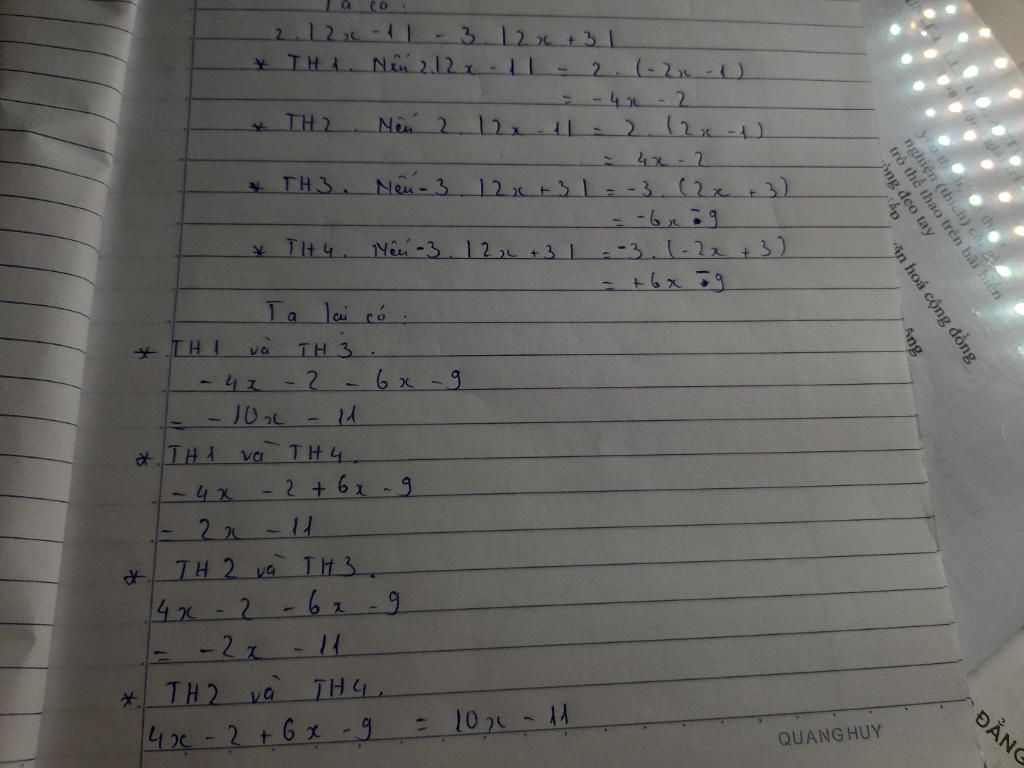 Ta có:
2.|2x - 1| - 3.|2x + 3|
* TH1. Nếu 2.|2x - 1| = 2.(-2x - 1)
= -4x - 2
* TH2. Nếu 2.|2x - 1| = 2.(2x - 1)
= 4x - 2
* TH3. Nếu -3.|2x + 3| = -3.(2x + 3)
= -6x - 9
* TH4. Nếu -3.|2x + 3| = -3.(-2x + 3)
= +6x - 9
Ta lại có:
* TH1 và TH3.
-4x - 2 - 6x - 9
= -10x - 11
* TH1 và TH4.
-4x - 2 + 6x - 9
= 2x - 11
* TH2 và TH3.
4x - 2 - 6x - 9
= -2x - 11
* TH2 và TH4.
4x - 2 + 6x - 9 = 10x - 11
QUANG HUY
nghiệm (thích)
trò thể thao trên bãi biển
đeo tay
hoá cộng đồng
ĐẲNG